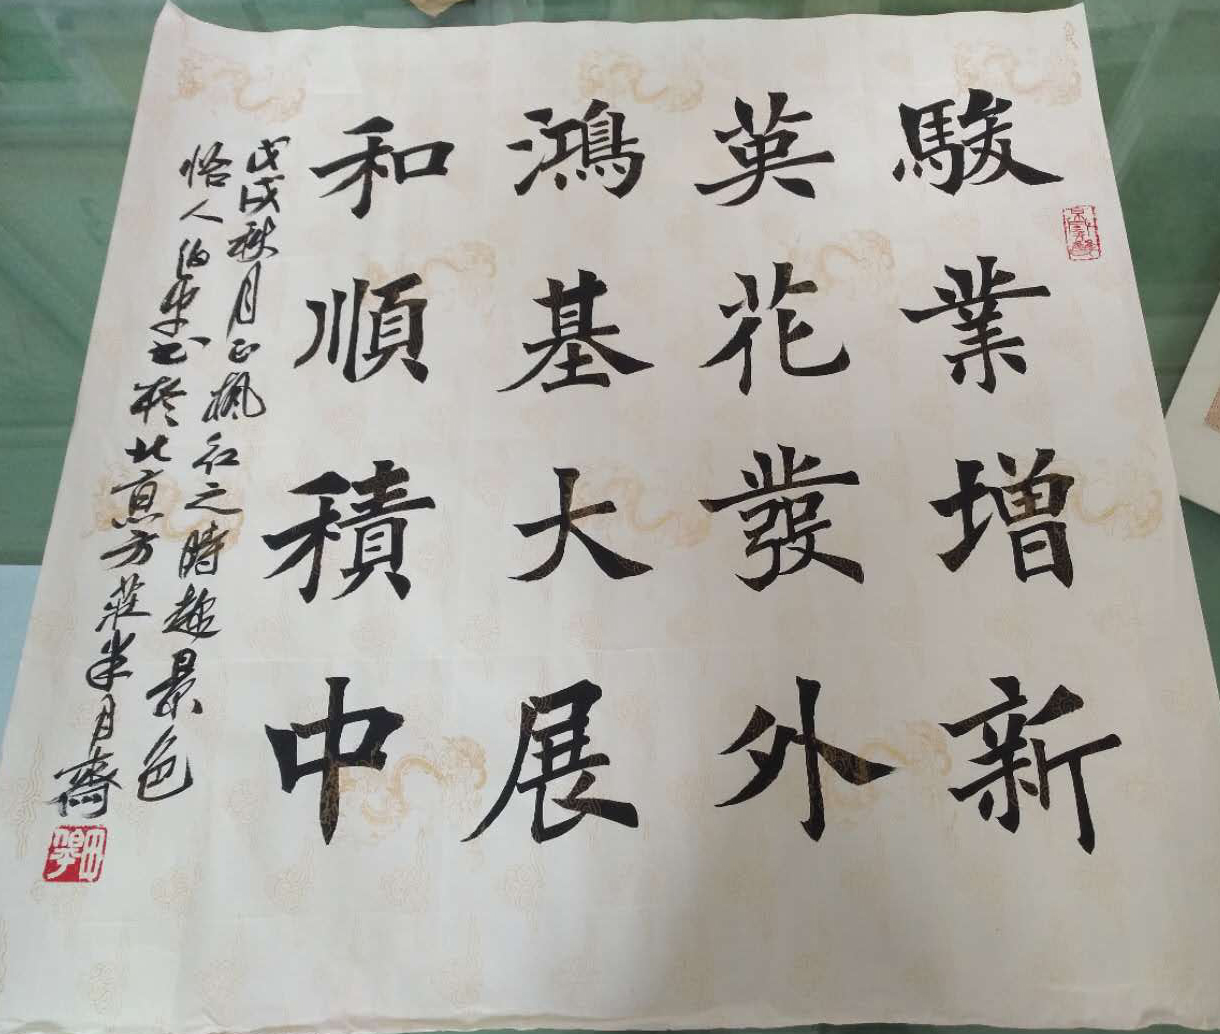 駿業增新
英花發外
鴻基大展
和順積中
戊戌秋月正楓紅之時趁景色
恪人伯安書於北京方莊半月齋